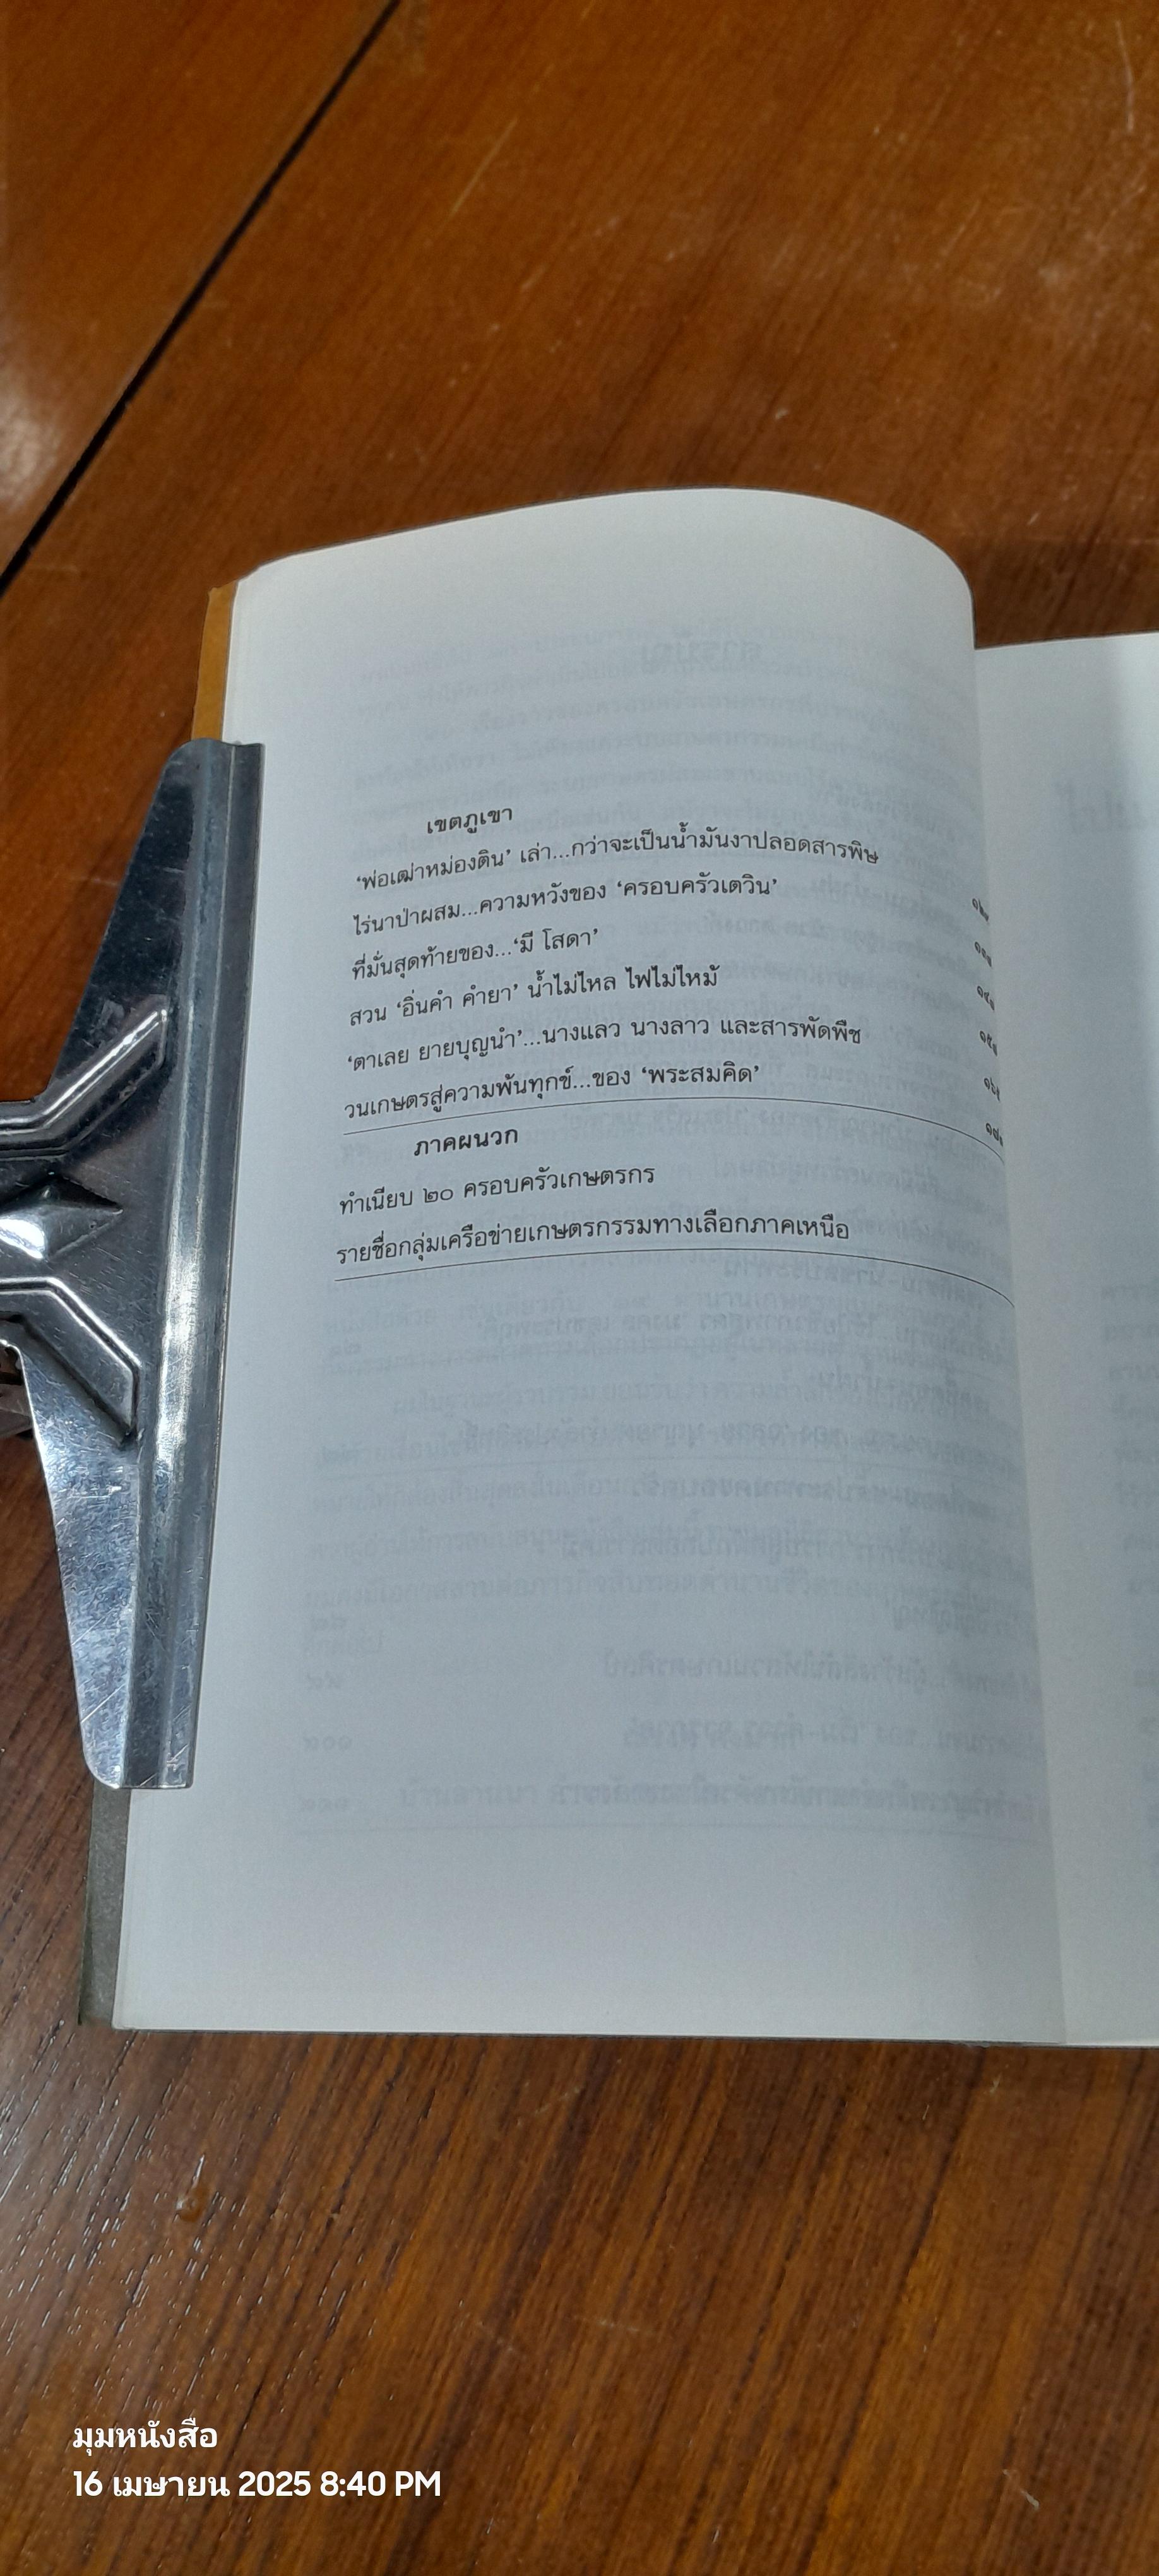 เขตภูเขา
‘พ่อเฒ่าหม่องติน’ เล่า...กว่าจะเป็นน้ำมันงาปลอดสารพิษ
ไร่นาป่าผสม...ความหวังของ ‘ครอบครัวเตวิน’
ที่มั่นสุดท้ายของ...‘มี โสดา’
สวน ‘อิ่นคำ คำยา’ น้ำไม่ไหล ไฟไม่ไหม้
‘ตาเลย ยายบุญนำ’...นางแลว นางลาว และสารพัดพืช
วนเกษตรสู่ความพ้นทุกข์...ของ ‘พระสมคิด’
ภาคผนวก
ทำเนียบ ๒๐ ครอบครัวเกษตรกร
รายชื่อกลุ่มเครือข่ายเกษตรกรรมทางเลือกภาคเหนือ
มุมหนังสือ
16 เมษายน 2025 8:40 PM